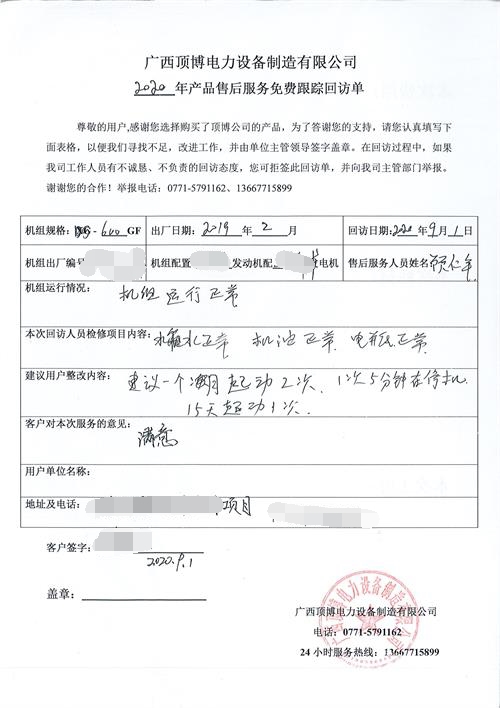 广西顶博电力设备制造有限公司
2020 年产品售后服务免费跟踪回访单
尊敬的用户,感谢您选择购买了顶博公司的产品，为了答谢您的支持，请您认真填写下
面表格，以便我们寻找不足，改进工作，并由单位主管领导签字盖章。在回访过程中，如果
我司工作人员有不诚恳、不负责的回访态度，您可拒签此回访单，并向我司主管部门举报。
谢谢您的合作！举报电话：0771-5791162、13667715899
机组规格: -600 GF 出厂日期: 2019 年 2 月 回访日期: 2020 年 9月 1 日
机组出厂编号 机组配置 发动机配 电机 售后服务人员姓名
机组运行情况: 机组运行正常
本次回访人员检修项目内容: 水箱水正常 机油正常. 电瓶正常.
建议用户整改内容: 建议一个月起动2次. 1次5分钟在停机.
15天起动1次.
客户对本次服务的意见: 满意
用户单位名称:
地址及电话: 项目
客户签字:
2020.9.1
盖章:
广西顶博电力设备制造有限公司
广西顶博电力设备制造有限公司
电话: 0771-5791162
24 小时服务热线: 13667715899